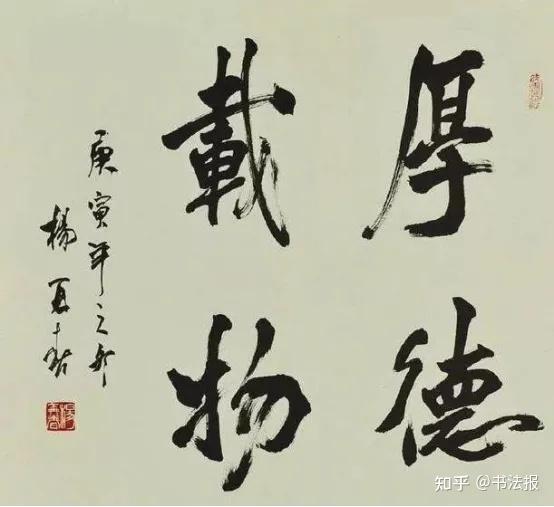 厚德
載物
庚寅年之
楊
知乎 @书法报